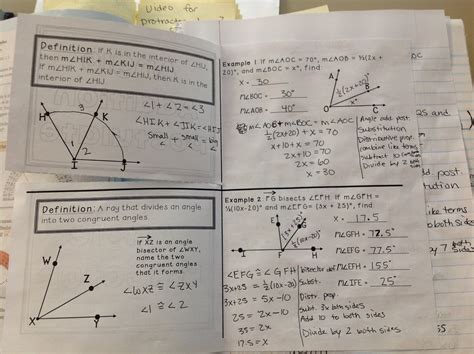 Video for
Definition: If K is in the interior of ∠HIJ,
then m∠HIK + m∠KIJ = m∠HIJ.
If m∠HIK + m∠KIJ = m∠HIJ, then K is in the
interior of ∠HIJ.
H
3
K
1
2
I
J
∠1 + ∠2 = ∠3
small + small = big
Example 1: If m∠AOC = 70°, m∠AOB = ½(2x +
20)°, and m∠BOC = x°, find
x = 30
m∠BOC = 30°
m∠AOB = 40°
A
½(2x+20)°
B
x°
O
C
m∠AOB + m∠BOC = m∠AOC
½(2x+20) + x = 70
x+10+x = 70
2x+10 = 70
2x = 60
x = 30
Angle add post.
Substitution
Distributive prop.
combine like terms
Subtract 10
Divide by 2
Definition: A ray that divides an angle
into two congruent angles
W
Z
X
Y
If XZ is an angle
bisector of ∠WXY,
name the two
congruent angles
that it forms.
∠WXZ ≅ ∠ZXY
∠1 ≅ ∠2
Example 2: FG bisects ∠EFH. If m∠GFH =
½(10x-20)° and m∠EFG = (3x + 25)°, find
x = 17.5
m∠GFH = 77.5°
m∠EFG = 77.5°
m∠EFH = 155°
m∠IFE = 25°
E
G
(3x+25)°
½(10x-20)°
I
F
H
∠EFG ≅ ∠GFH
3x+25 = ½(10x-20)
3x+25 = 5x-10
25 = 2x-10
35 = 2x
17.5 = x
Bisector def
Subst.
Distr. prop.
Subt. 3x both sides
Add 10 to both sides
Divide by 2 both sides